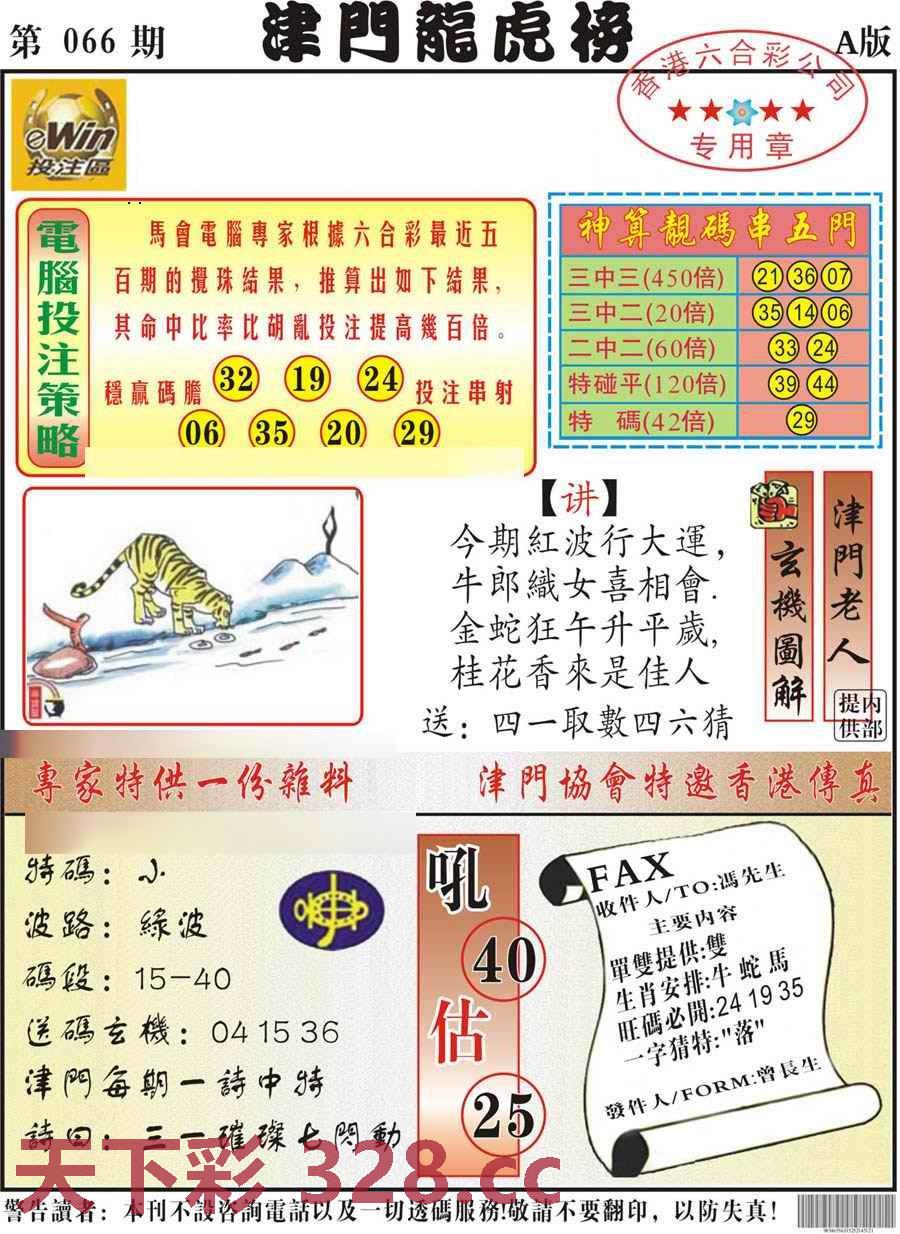 第 066 期
津門龍虎榜
A版
香港六合彩公司
专用章
eWin
投注區
電腦投注策略
馬會電腦專家根據六合彩最近五
百期的攪珠結果，推算出如下結果，
其命中比率比胡亂投注提高幾百倍。
穩贏碼膽 32 19 24 投注串射
06 35 20 29
神算靚碼串五門
三中三(450倍) 21 36 07
三中二(20倍) 35 14 06
二中二(60倍) 33 24
特碰平(120倍) 39 44
特 碼(42倍) 29
【讲】
今期紅波行大運，
牛郎織女喜相會.
金蛇狂午升平歲,
桂花香來是佳人
送：四一取數四六猜
玄機圖解
津門老人
内部提供
專家特供一份雜料
津門協會特邀香港傳真
特碼：小
波路：綠波
碼段：15-40
送碼玄機：04 15 36
津門每期一詩中特
詩曰：三一璀璨七閃動
吼
40
估
25
FAX
收件人/TO:馮先生
主要内容
單雙提供:雙
生肖安排:牛 蛇 馬
旺碼必開:24 19 35
一字猜特:"落"
發件人/FORM:曾長生
天下彩 328.cc
警告讀者：本刊不設咨詢電話以及一切透碼服務!敬請不要翻印，以防失真！